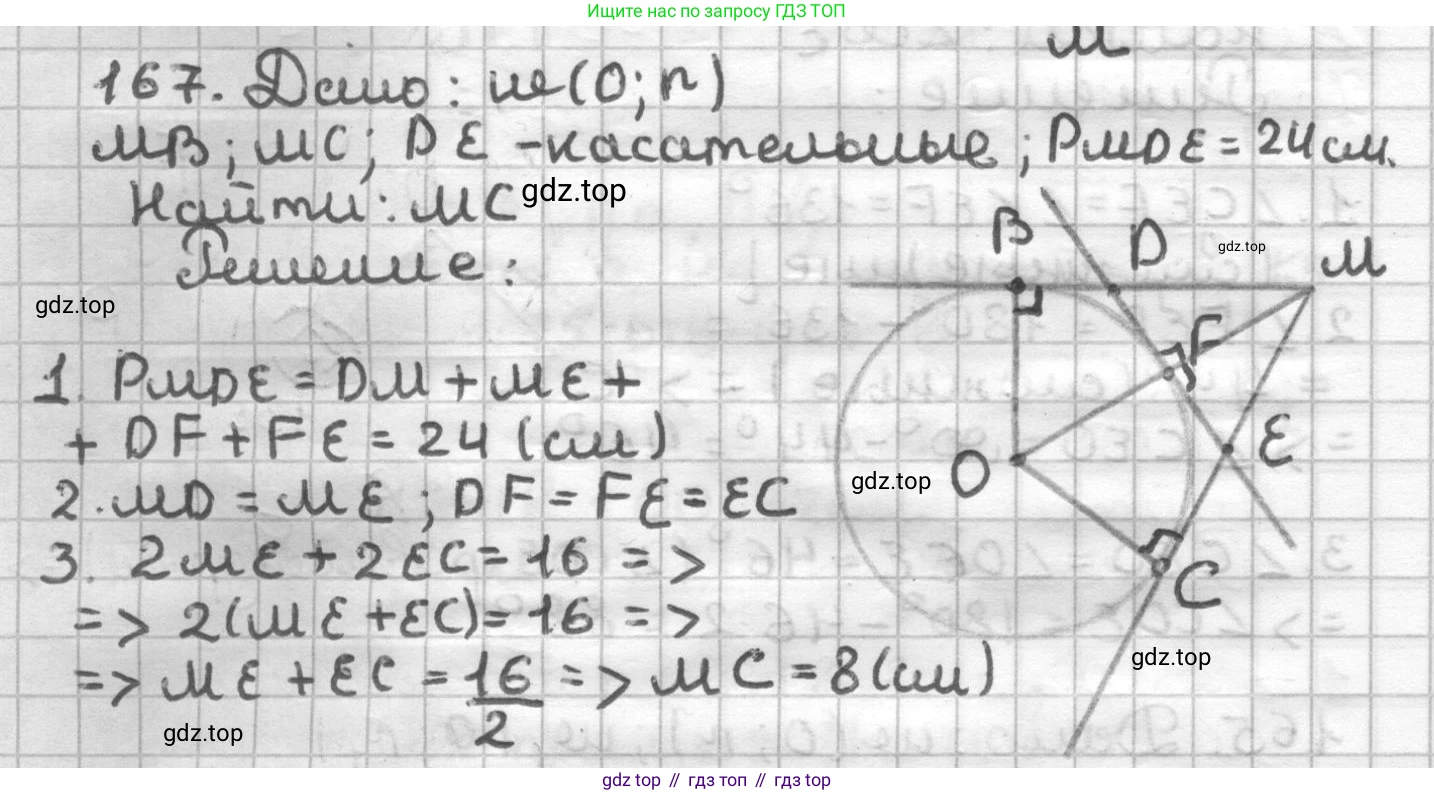 Ищите нас по запросу ГДЗ ТОП
М
167. Дано: w(O; r)
MB; MC; DE - касательные; PMDE = 24 см.
Найти: MC
gdz.top
Решение:
gdz.top
B
D
gdz.top
M
F
1. PMDE = DM + ME +
+ DF + FE = 24 (см)
E
O
gdz.top
2. MD = ME; DF = FE = EC
3. 2ME + 2EC = 16 =>
C
=> 2(ME + EC) = 16 =>
gdz.top
=> ME + EC = 16/2 => MC = 8 (см)
gdz.top
gdz top // гдз топ // гдз top